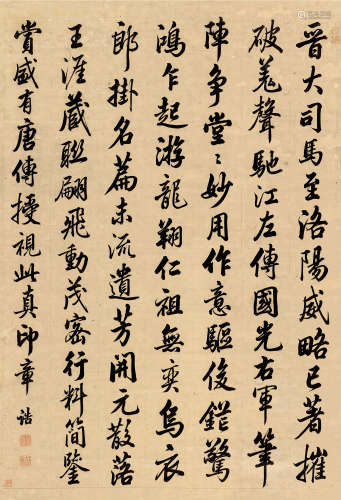 晉大司馬至洛陽威略已著摧
破羌聲馳江左傳國光右軍筆
陣爭堂〻妙用作意驅俊鋩驚
鴻乍起游龍翔仁祖無奕烏衣
郎掛名篇末流遺芳開元散落
王涯藏聯翩飛動茂密行料簡鑒
賞盛有唐傳授視此真印章 誥